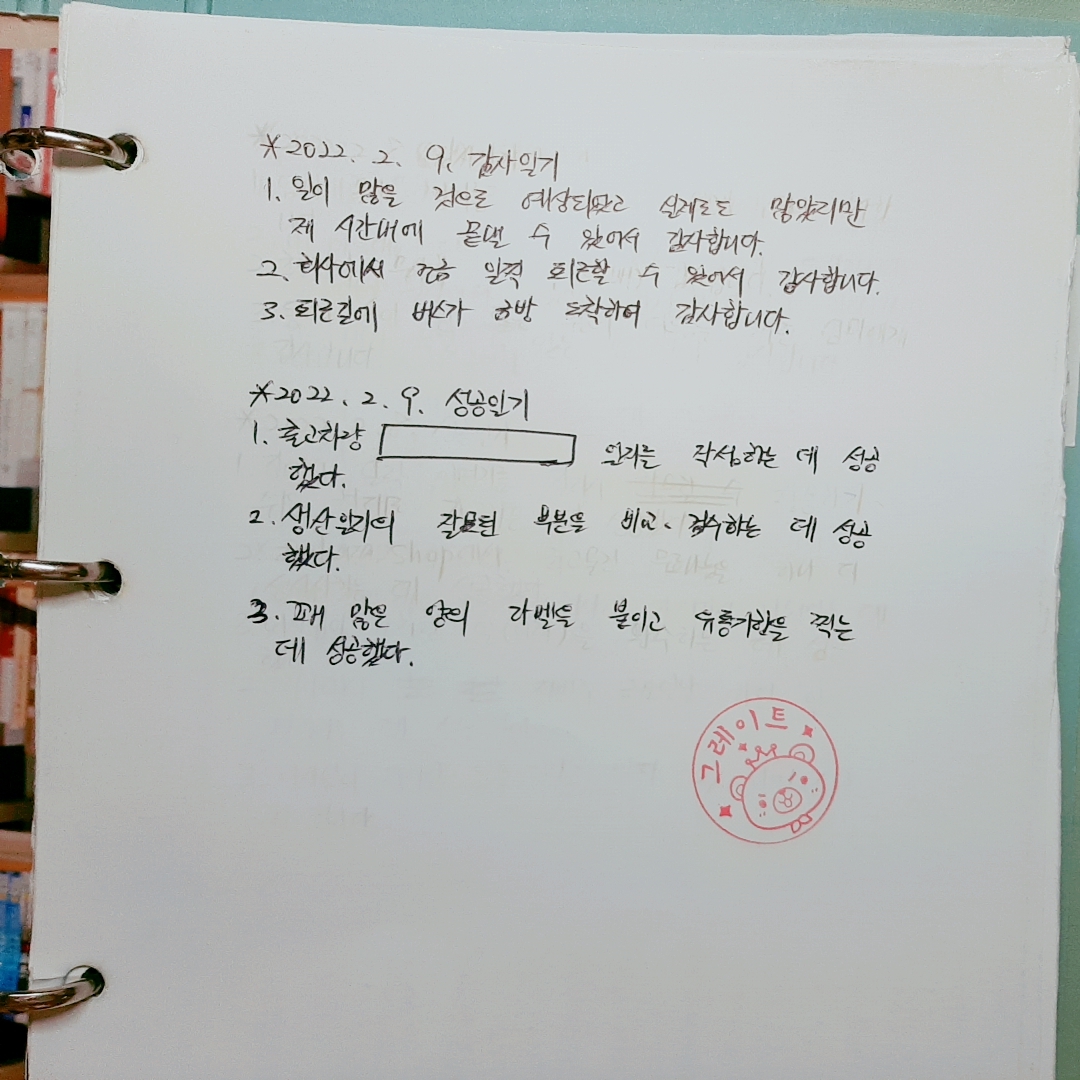 *2022. 2. 9. 감사일기
1. 일이 많을 것으로 예상되었고 실제로도 많았지만
제 시간내에 끝낼 수 있어서 감사합니다.
2. 회사에서 조금 일찍 퇴근할 수 있어서 감사합니다.
3. 퇴근길에 버스가 금방 도착하여 감사합니다.
*2022. 2. 9. 성공일기
1. 출고차량 일지를 작성하는 데 성공
했다.
2. 생산일지의 잘못된 부분을 비교·검수하는 데 성공
했다.
3. 꽤 많은 양의 라벨을 붙이고 유통기한을 찍는
데 성공했다.
그레이트